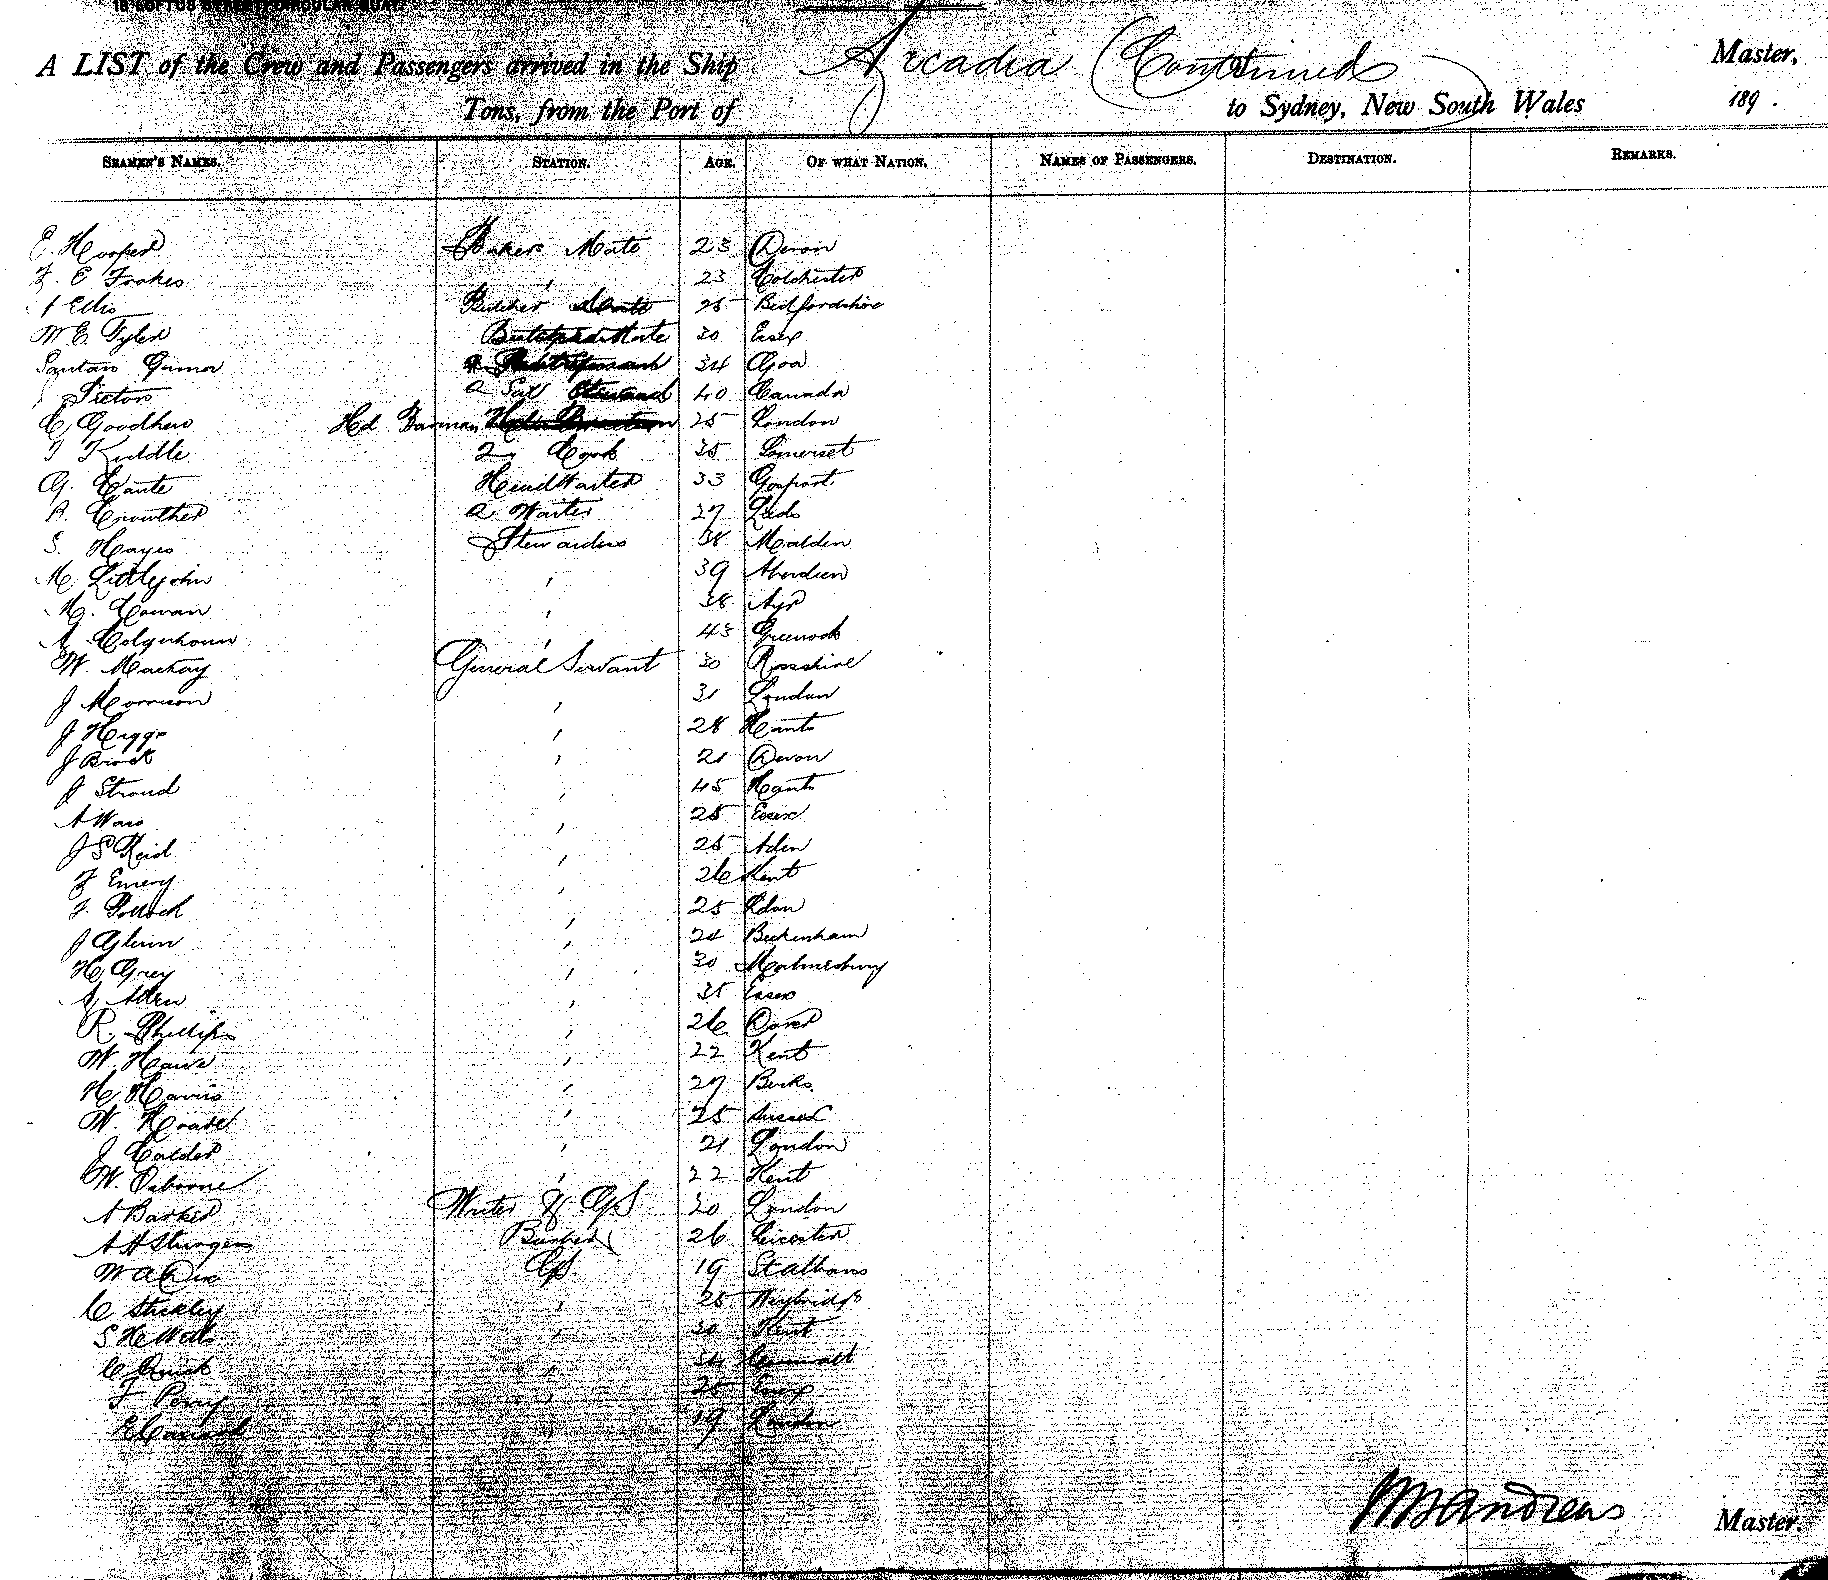 A LIST of the Crew and Passengers arrived in the Ship Arcadia (Continued) Master,
Tons, from the Port of to Sydney, New South Wales 189 .
SEAMEN'S NAMES. STATION. AGE. OF WHAT NATION. NAMES OF PASSENGERS. DESTINATION. REMARKS.
E. Hooper Bakers Mate 23 Devon
F. E Fookes " 23 Colchester
Ellis Butcher 25 Bedfordshire
W E. Tyler 30 Essex
34 Goa
Pictor a Sal 40 Canada
C. Goodhew Hd Barman 25 London
Kiddle 2 Cook 35 Somerset
G. Cante Head Waiter 33 Gosport
A. Crowther a. Waiter 27 Leeds
S. Hayes Stewardess 38 Malden
M. Littlejohn " 39 Aberdeen
Cowan " 38 Ayr
A Colquhoun " 43 Greenock
W. Mackay General Servant 30 Rossshire
J Morrison " 31 London
J Higgs " 28 Hants
J Brock " 21 Devon
J Stroud " 45 Hants
A " 25 Essex
J S Reid " 25 Aden
F Emery " 26 Kent
Pollock " 25
J Glenn " 24 Beckenham
H Grey " 30 Malmesbury
A Allen " 35 Essex
R. Phillips " 26 Dover
W. " 22 Kent
H Harris " 27 Berks
W. Hoare " 25 Sussex
J Calder " 21 London
W. Osborne " 22 Kent
A Barker Writer & GS 20 London
A H Sturgess Barber 26 Leicester
W A Dix GS 19 St albans
C Stickley " 25 Weybridge
S H Wells " 30 Kent
C "
F Perry " Essex
" 19 London
Andrews Master.